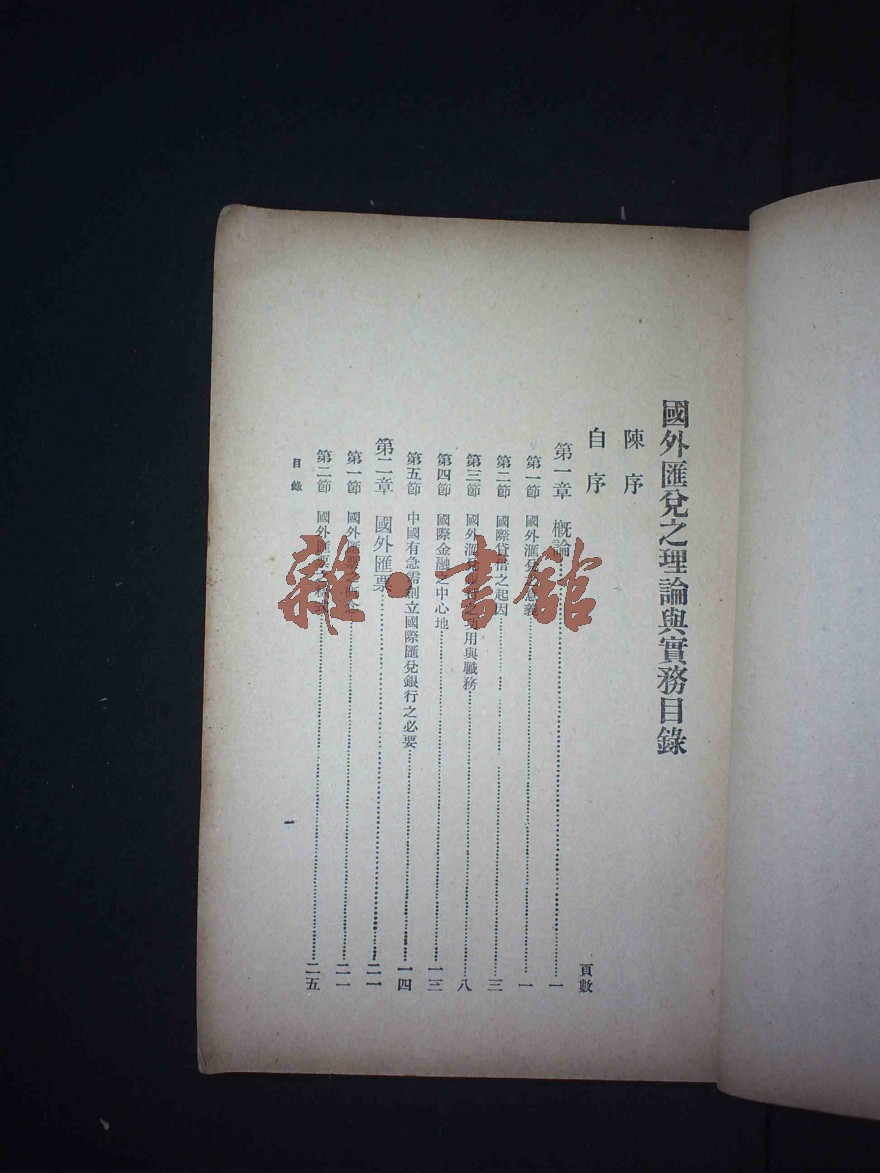 國外匯兌之理論與實務目錄
陳序
自序
頁數
第一章 概論 一
第一節 國外滙兌之意義 一
第二節 國際貸借之起因 三
第三節 國外滙兌銀行之功用與職務 八
第四節 國際金融之中心地 一三
第五節 中國有急需創立國際匯兌銀行之必要 一四
第二章 國外匯票 二一
第一節 國外匯票 二一
第二節 國外匯票 二五
目錄
一
雜·書館